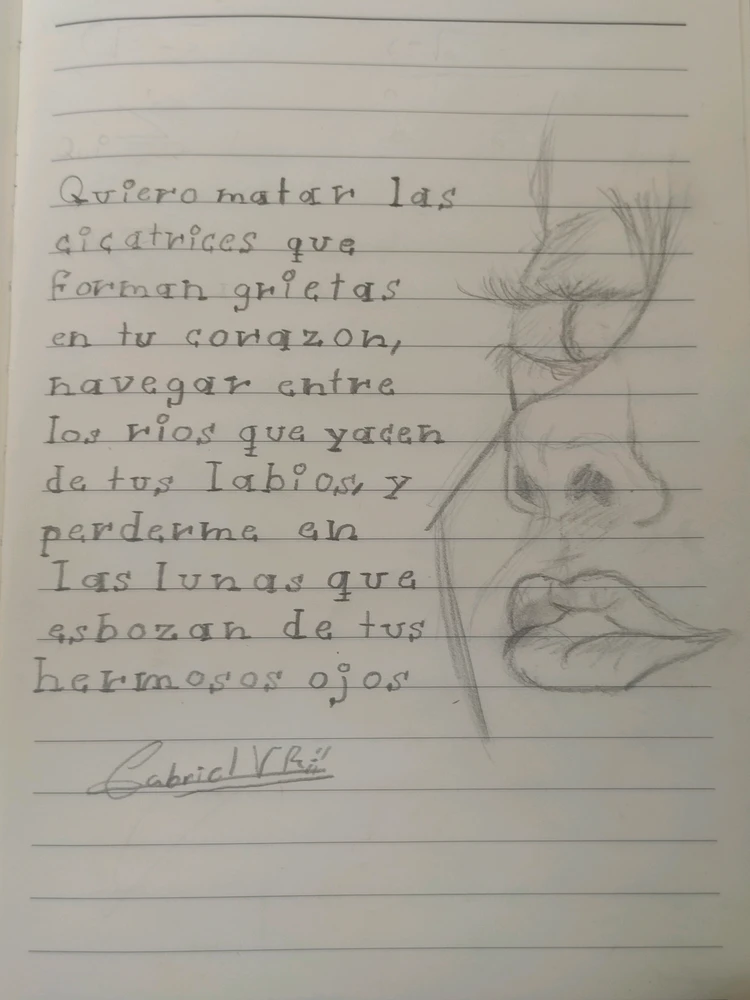 Quiero matar las
cicatrices que
forman grietas
en tu corazon,
navegar entre
los rios que yacen
de tus labios, y
perderme en
las lunas que
esbozan de tus
hermosos ojos
Gabriel VR